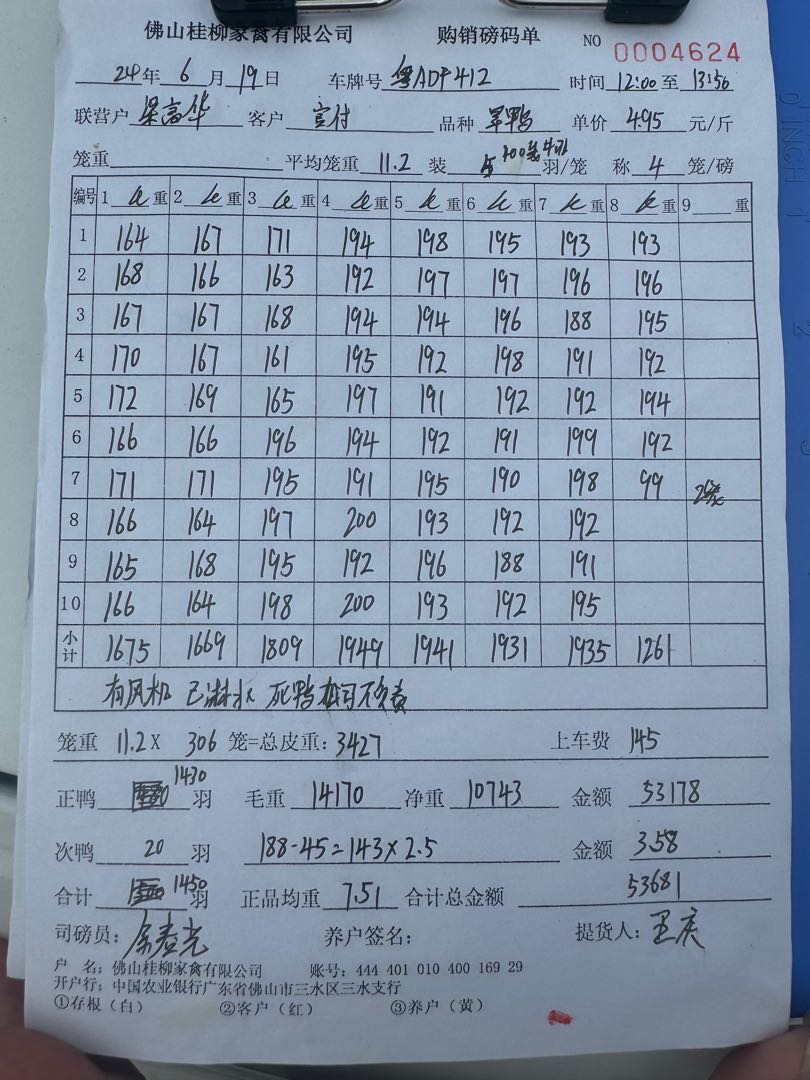 佛山桂柳家禽有限公司 购销磅码单 NO 0004624
24年 6 月 19日 车牌号 粤ADF412 时间 12:00 至 13:56
联营户 梁高华 客户 客户 品种 旱鸭 单价 4.95 元/斤
笼重 平均笼重 11.2 装 5 羽/笼 称 4 笼/磅
编号 1 重 2 重 3 重 4 重 5 重 6 重 7 重 8 重 9 重
1 164 167 171 194 198 195 193 193
2 168 166 163 192 197 197 196 196
3 167 167 168 194 194 196 188 195
4 170 167 161 195 192 198 191 192
5 172 169 165 197 191 192 192 194
6 166 166 196 194 192 191 199 192
7 171 171 195 191 195 190 198 99
8 166 164 197 200 193 192 192
9 165 168 195 192 196 188 191
10 166 164 198 200 193 192 195
小计 1675 1669 1809 1949 1941 1931 1935 1261
有风机 已淋水 死鸭 公司不负责
笼重 11.2 X 306 笼=总皮重: 3427 上车费 145
正鸭 1430 羽 毛重 14170 净重 10743 金额 53178
次鸭 20 羽 188-45=143×2.5 金额 358
合计 1450 羽 正品均重 7.51 合计总金额 53681
司磅员: 养户签名: 提货人: 王庆
户 名: 佛山桂柳家禽有限公司 账号: 444 401 010 400 169 29
开户行: 中国农业银行广东省佛山市三水区三水支行
①存根（白） ②客户（红） ③养户（黄）